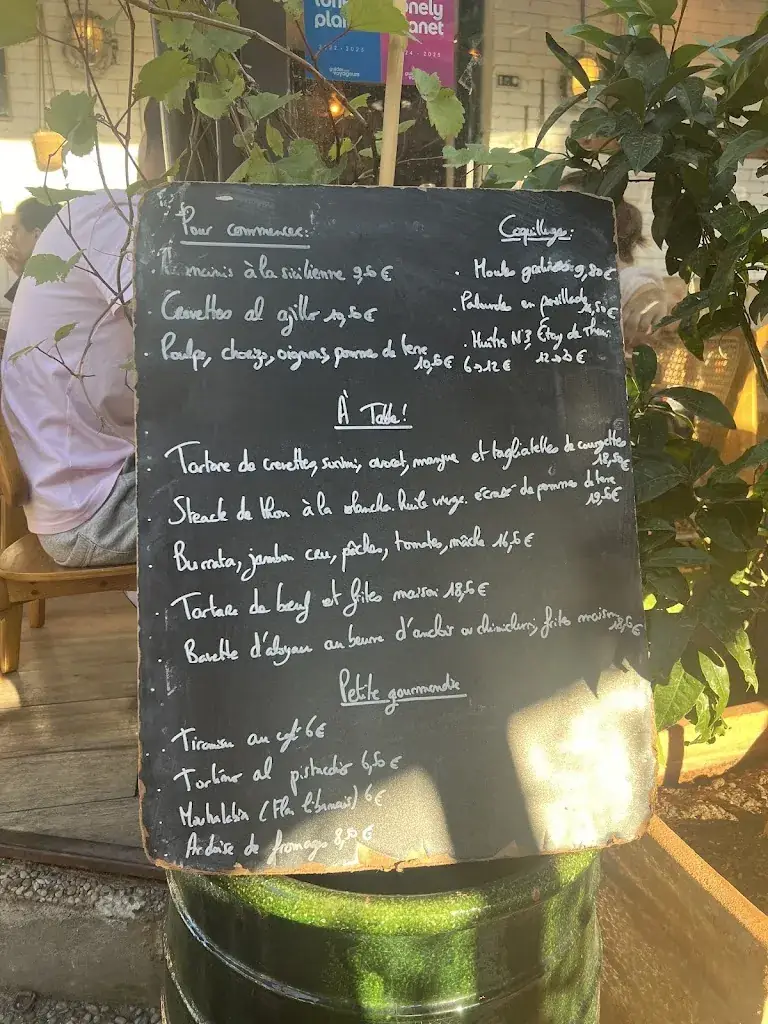 lonely planet
2022 - 2023
lonely planet
2024 - 2025
Pour commencer:
à la sicilienne 9,50€
Crevettes al ajillo 10,50€
Poulpe, chorizo, oignons, pomme de terre 10,50€
Coquillage:
Moules gratinées 9,80€
Palourde en persillade
Huître N°3, Etang de Thau
6→12€
À Table!
Tartare de crevettes, surimi, avocat, mangue et tagliatelles de courgettes 18,50€
Steack de thon à la plancha. huile vierge. écrasé de pomme de terre 19,50€
Burrata, jambon cru, pêches, tomates, mâche 16,50€
Tartare de bœuf et frites maison 18,50€
Bavette d'aloyau au beurre d'anchois ou chimichurri, frites maison 18,50€
Petite gourmandise
Tiramisu au café 6€
al pistacchio 6,50€
Mouhalabia (Flan libanais) 6€
Ardoise de fromage 8,50€